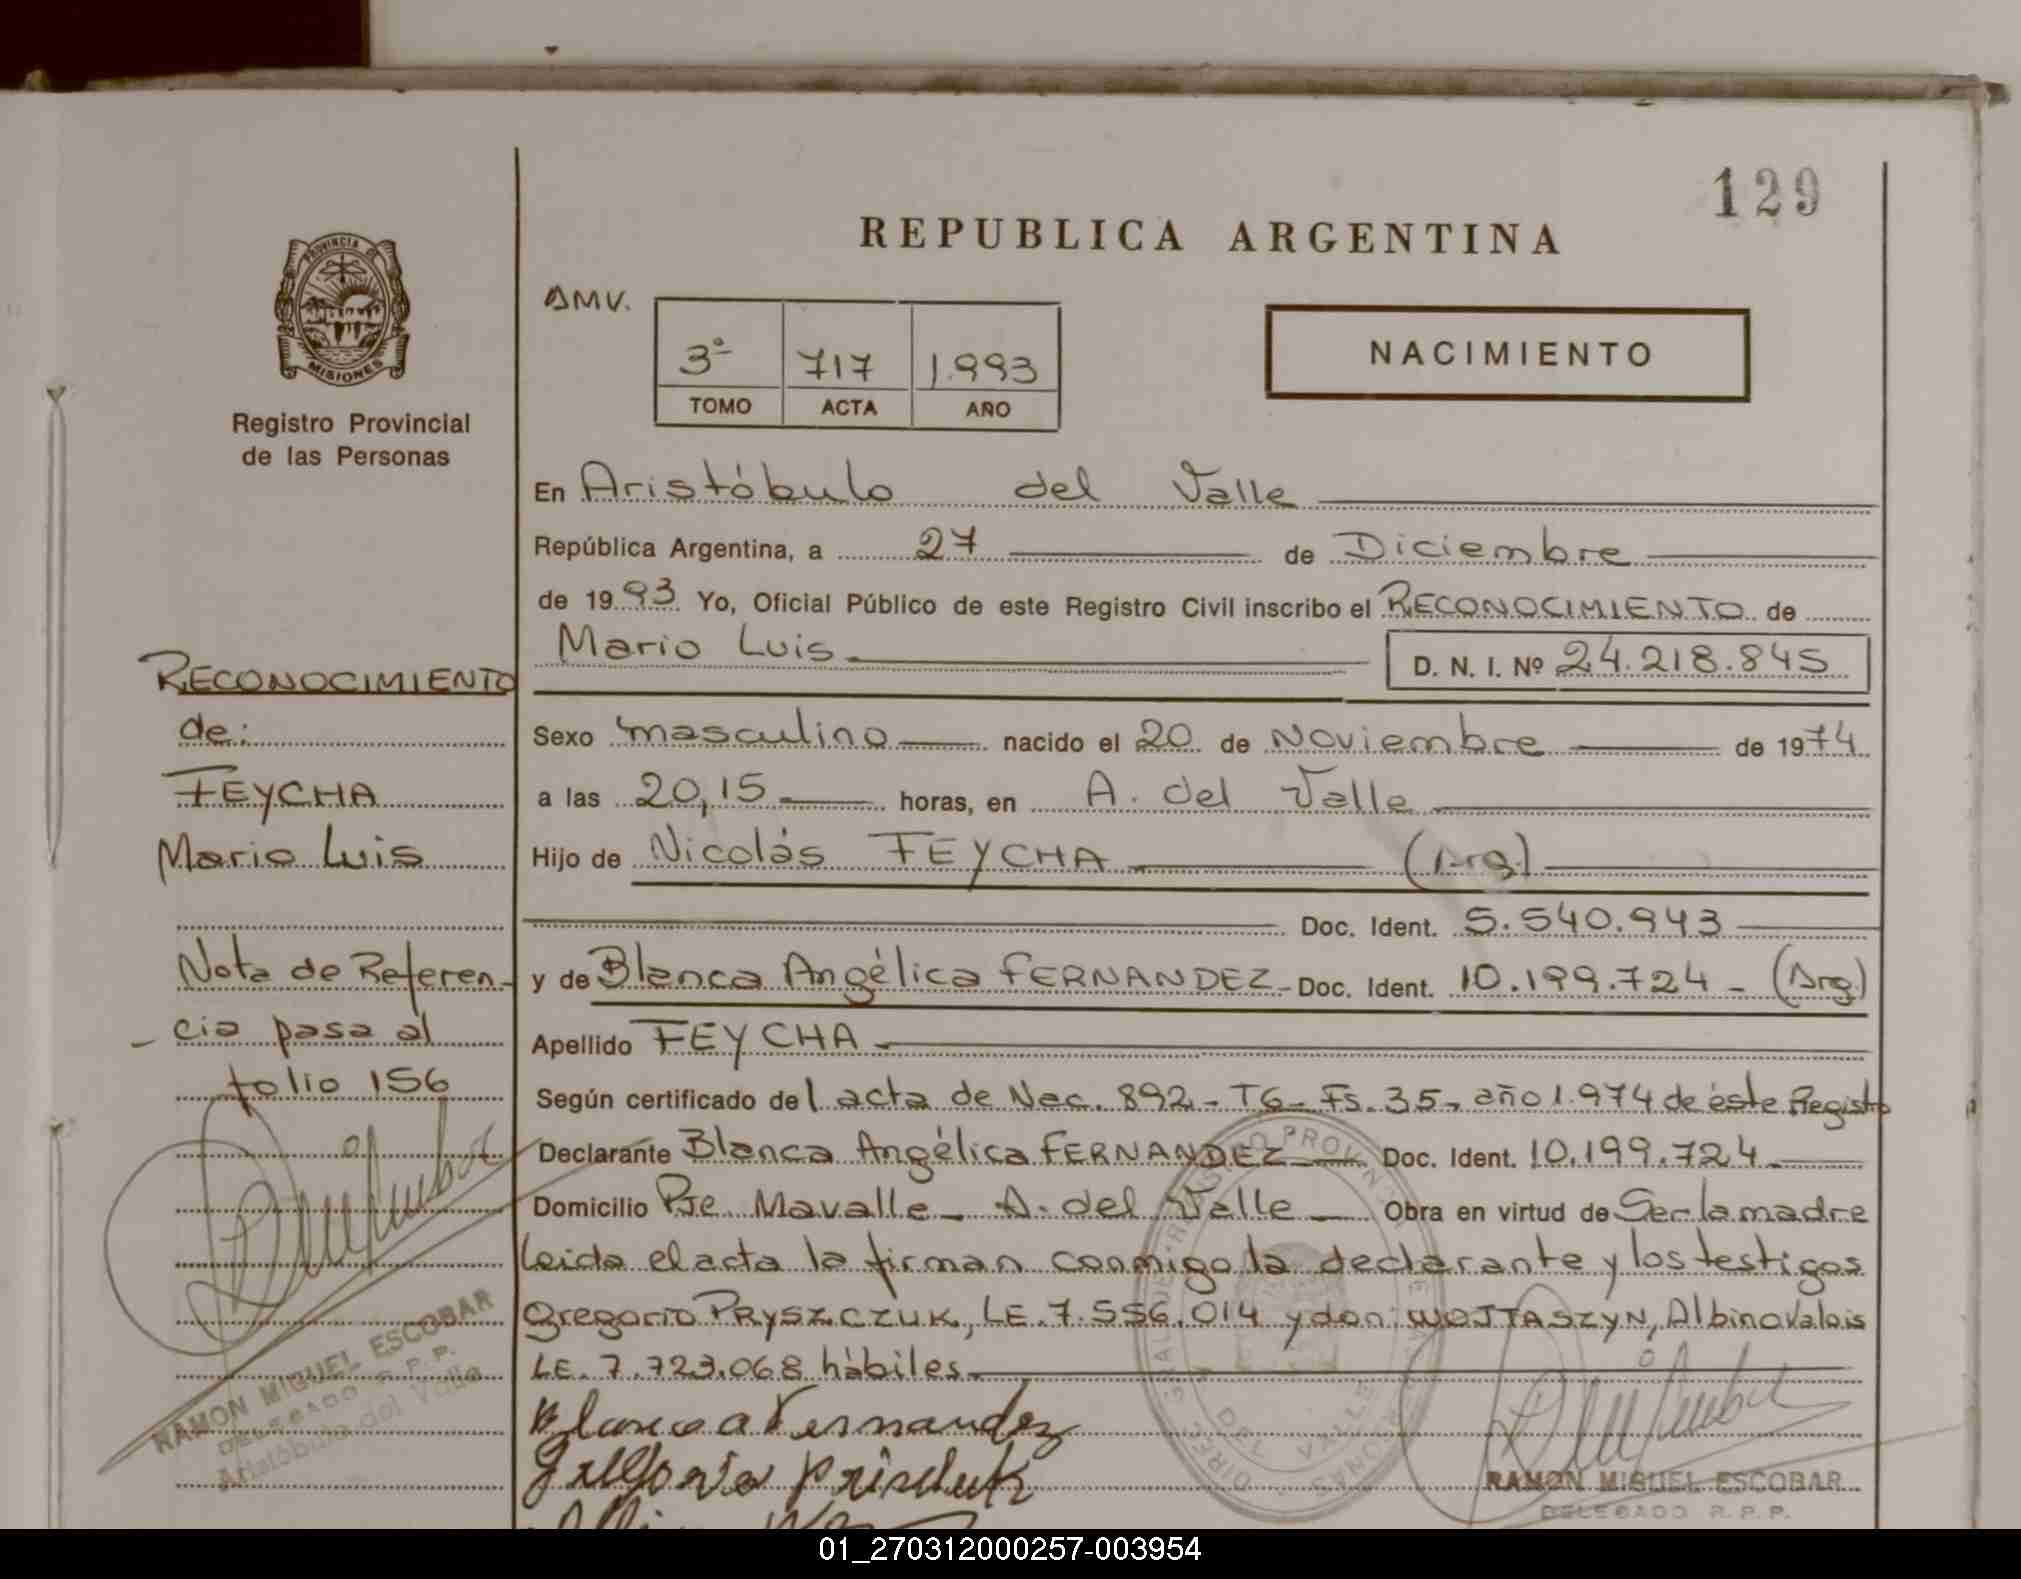 129
REPUBLICA ARGENTINA
PROVINCIA DE
MISIONES
Registro Provincial
de las Personas
AMV.
3º 717 1.993
TOMO ACTA AÑO
NACIMIENTO
En Aristóbulo del Valle
República Argentina, a 27 de Diciembre
de 1993 Yo, Oficial Público de este Registro Civil inscribo el RECONOCIMIENTO de
Mario Luis D. N. I. Nº 24.218.845
Sexo masculino nacido el 20 de Noviembre de 1974
a las 20,15 horas, en A. del Valle
Hijo de Nicolás FEYCHA (Arg.)
Doc. Ident. 5.540.943
y de Blanca Angélica FERNANDEZ - Doc. Ident. 10.199.724 - (Arg)
Apellido FEYCHA
Según certificado del acta de Nac. 892 - T6 - Fs. 35 - año 1.974 de éste Registro
Declarante Blanca Angélica FERNANDEZ Doc. Ident. 10.199.724
Domicilio Pje Mavalle - A. del Valle Obra en virtud de Ser la madre
Leida el acta la firman conmigo la declarante y los testigos
Gregorio PRYSZCZUK, LE. 7.556.014 y don: WOJTASZYN, Albino Valois
LE. 7.723.068 hábiles
Blanca A Fernandez
RAMON MIGUEL ESCOBAR
DELEGADO R. P. P.
RECONOCIMIENTO
de:
FEYCHA
Mario Luis
Nota de Referen-
- cia pasa al
folio 156
RAMON MIGUEL ESCOBAR
DELEGADO R. P. P.
Aristóbulo del Valle
01_270312000257-003954